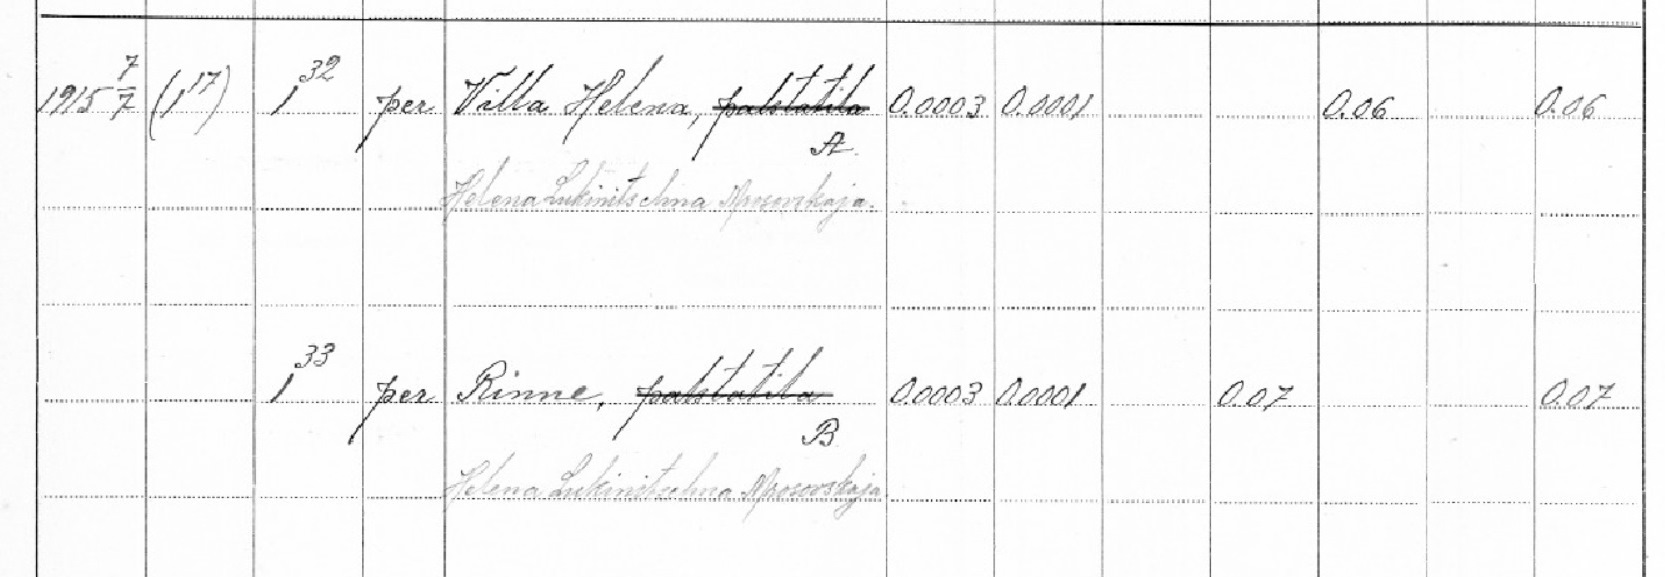 1915 7/7 (1¹⁷) 1³² per Villa Helena, palstatila 0.0003 0.0001 0.06 0.06
A.
Helena Lukinitschna
1³³ per Rinne, palstatila 0.0003 0.0001 0.07 0.07
B
Helena Lukinitschna